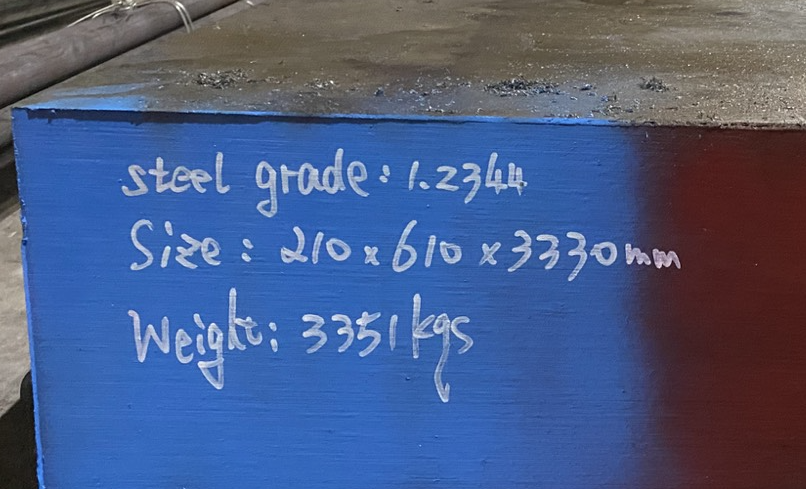 steel grade: 1.2344
Size: 210 x 610 x 3330mm
Weight: 3351kgs